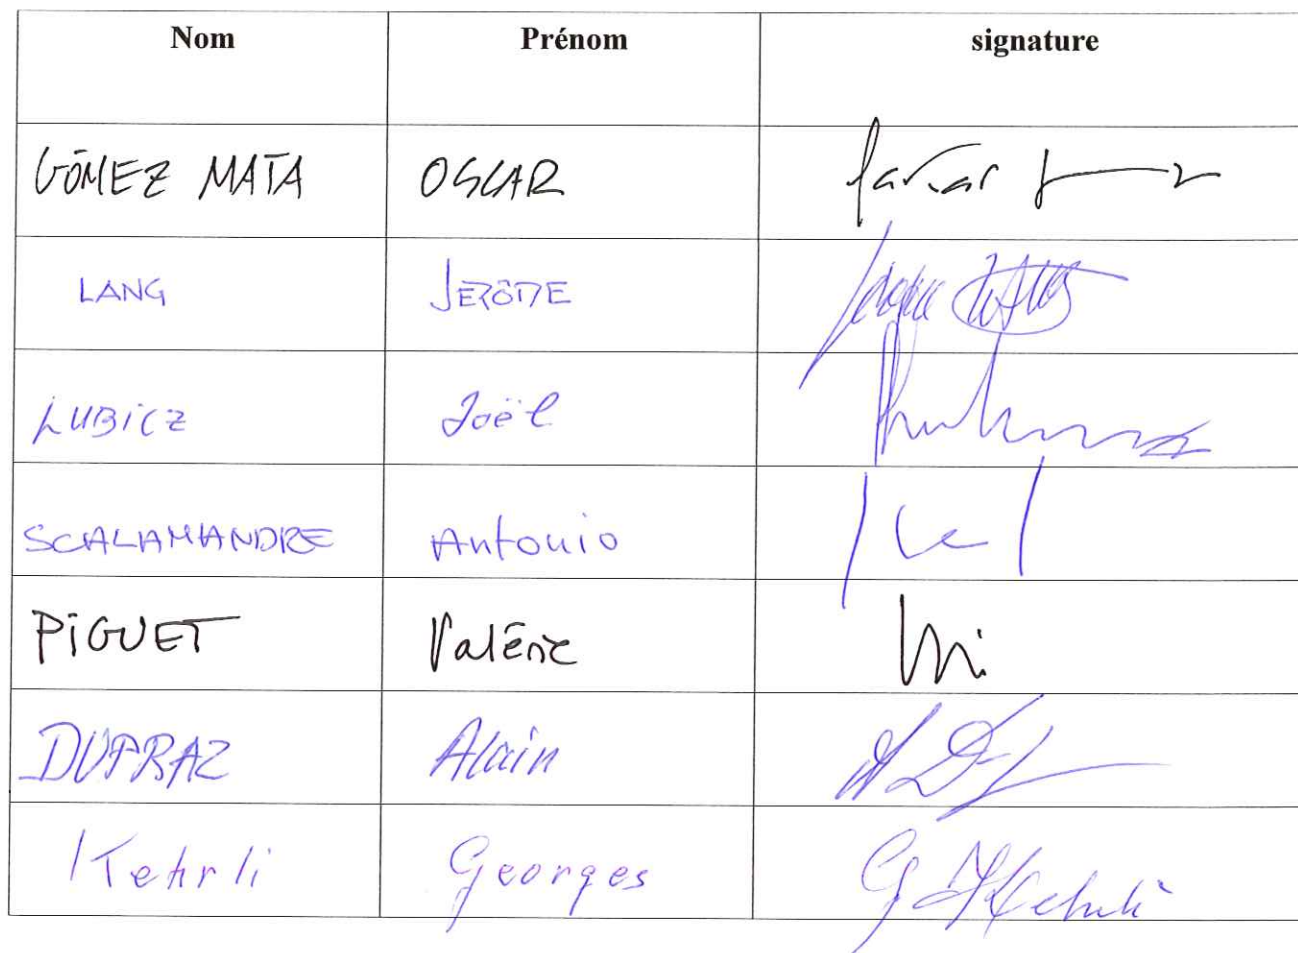 Nom Prénom signature
GÓMEZ MATA OSCAR
LANG JERÔME
LUBICZ Joël
SCALAMANDRE Antonio
PIGUET Valérie
DUPRAZ Alain
Kehrli Georges G Kehrli